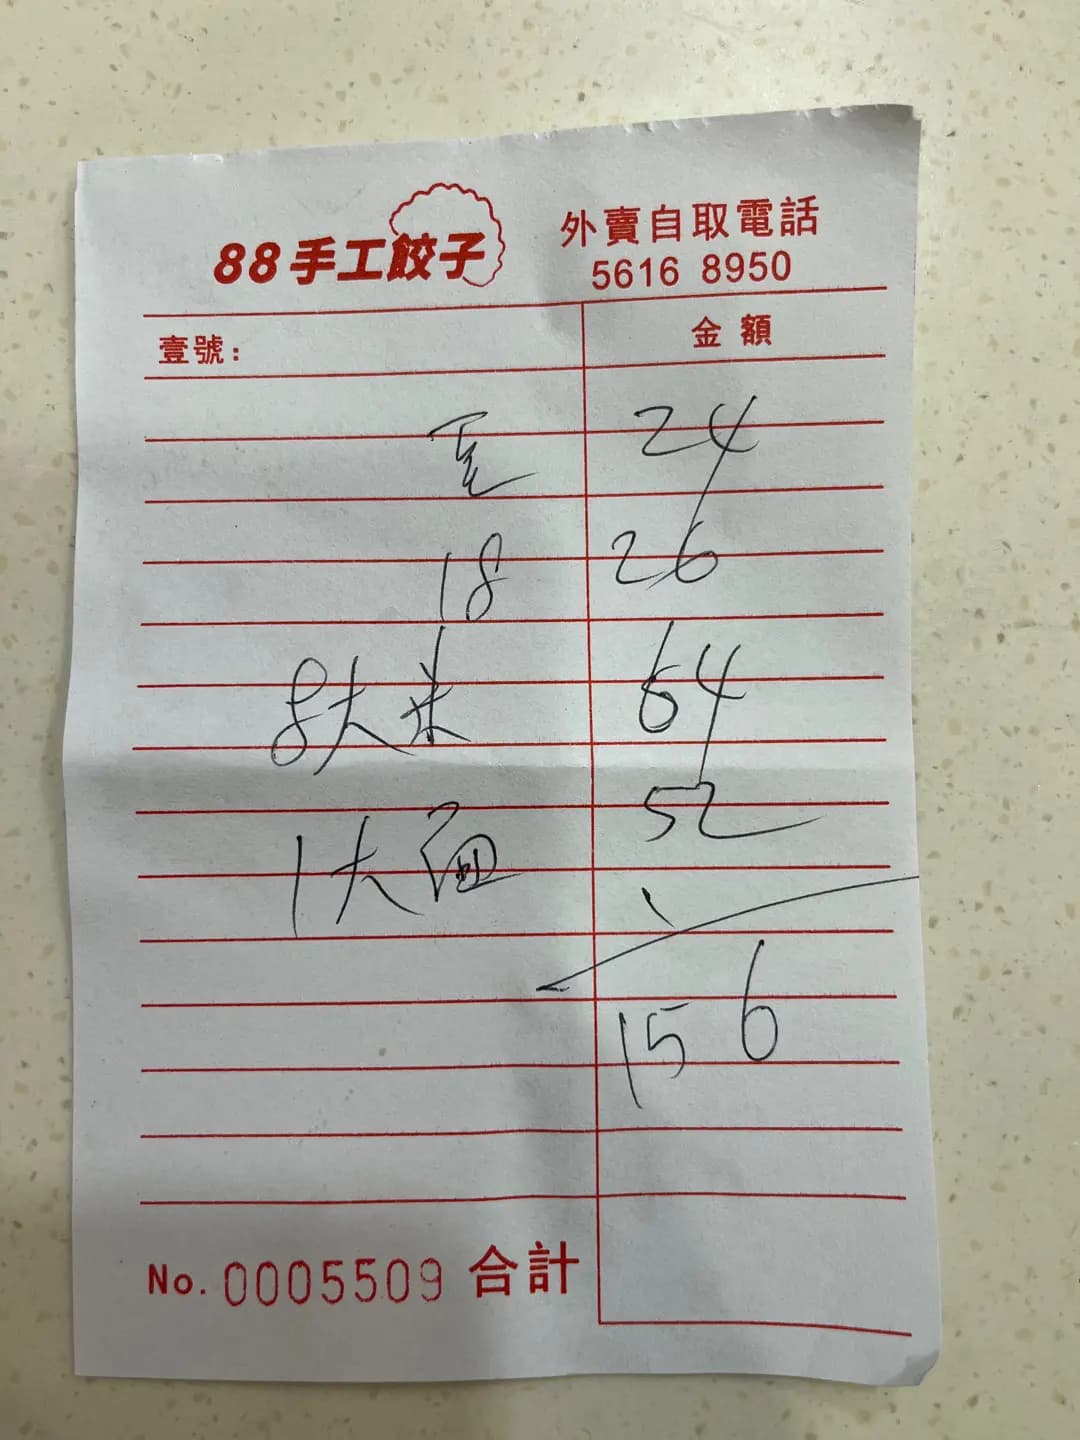 88手工餃子
外賣自取電話
5616 8950
壹號：
金額
24
18 26
8大米 64
1大面 52
156
No. 0005509 合計